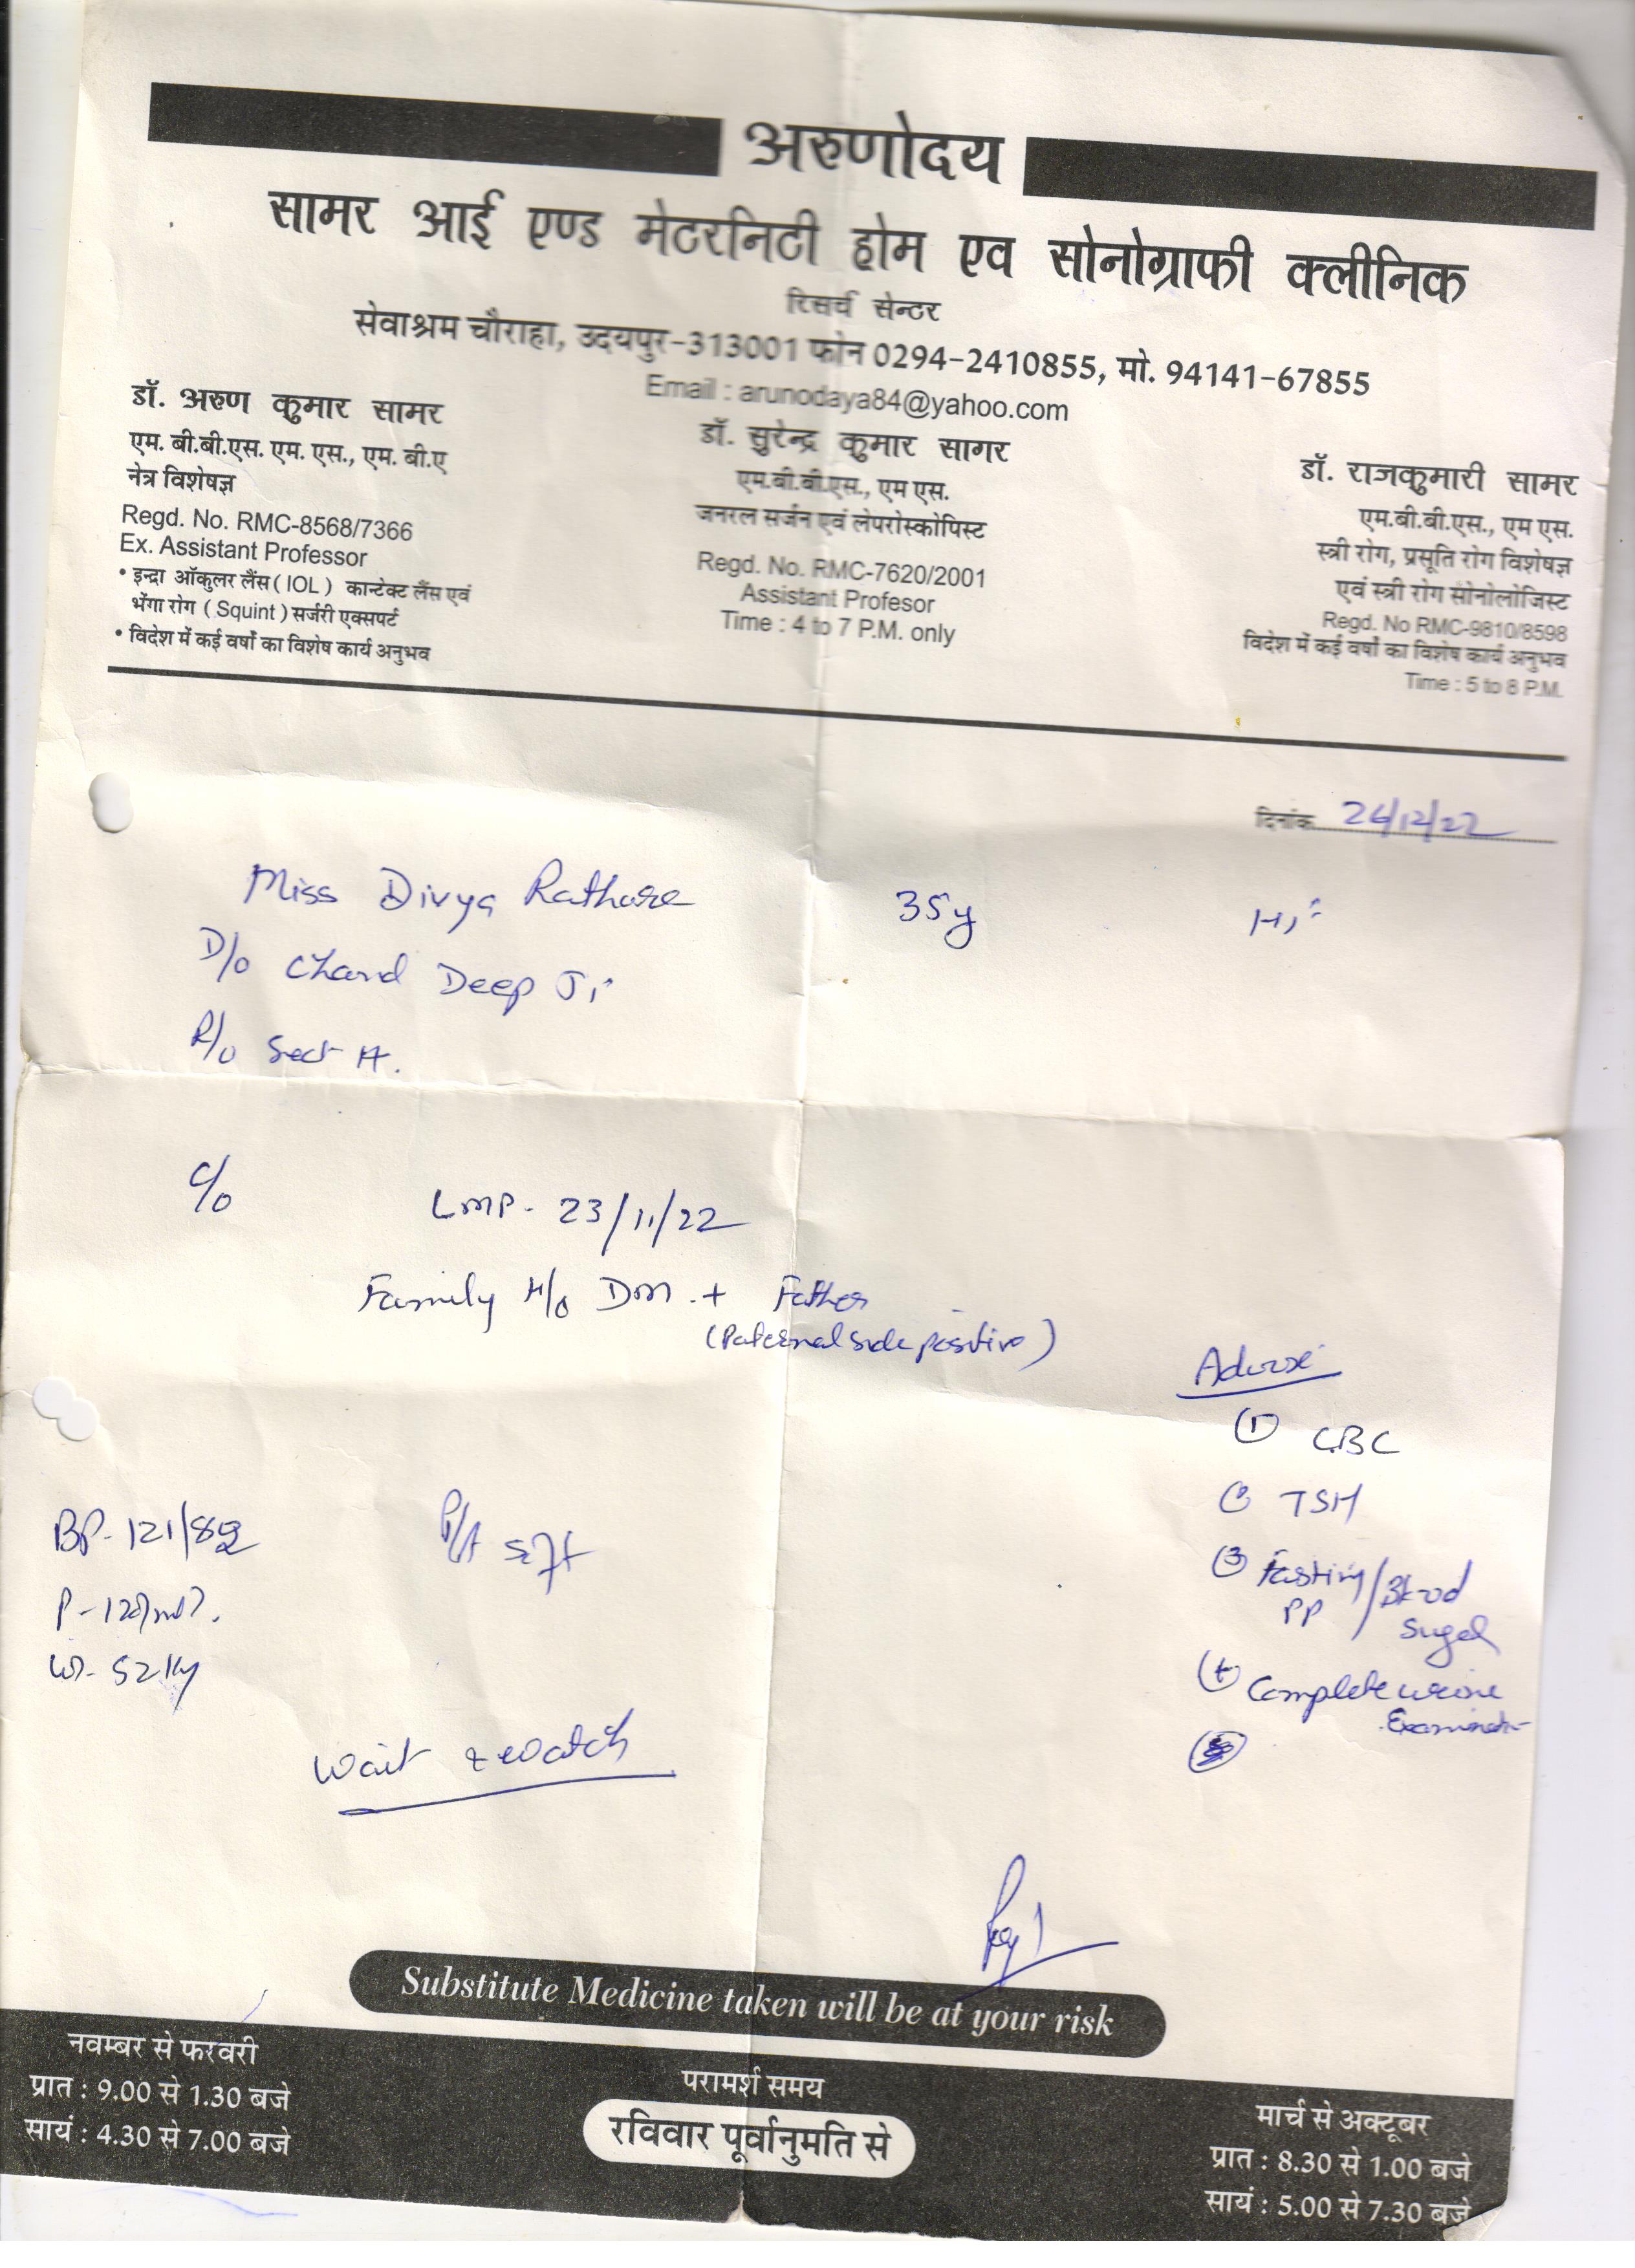 अरुणोदय
सामर आई एण्ड मेटरनिटी होम एव सोनोग्राफी क्लीनिक
रिसर्च सेन्टर
सेवाश्रम चौराहा, उदयपुर-313001 फोन 0294-2410855, मो. 94141-67855
Email : arunodaya84@yahoo.com
डॉ. अरुण कुमार सामर
एम. बी.बी.एस. एम. एस., एम. बी.ए
नेत्र विशेषज्ञ
Regd. No. RMC-8568/7366
Ex. Assistant Professor
• इन्द्रा ऑकुलर लैंस ( IOL ) कान्टेक्ट लैंस एवं
भेंगा रोग ( Squint ) सर्जरी एक्सपर्ट
• विदेश में कई वर्षों का विशेष कार्य अनुभव
डॉ. सुरेन्द्र कुमार सागर
एम.बी.बी.एस., एम एस.
जनरल सर्जन एवं लेपरोस्कोपिस्ट
Regd. No. RMC-7620/2001
Assistant Profesor
Time : 4 to 7 P.M. only
डॉ. राजकुमारी सामर
एम.बी.बी.एस., एम एस.
स्त्री रोग, प्रसूति रोग विशेषज्ञ
एवं स्त्री रोग सोनोलोजिस्ट
Regd. No RMC-9810/8598
विदेश में कई वर्षों का विशेष कार्य अनुभव
Time : 5 to 8 P.M.
दिनांक 26/12/22
Miss Divya Rathore 35y
D/o Chand Deep Ji
R/o Sect
C/o LMP- 23/11/22
Family H/o DM + Father
(Paternal side positive)
Advise
① CBC
TSH
③ Fasting / Blood
PP Sugar
Complete urine
Examination
BP- 121/82 P/A soft
P-
Wt- 52 kg
Wait & watch
Substitute Medicine taken will be at your risk
नवम्बर से फरवरी
प्रात : 9.00 से 1.30 बजे
सायं : 4.30 से 7.00 बजे
परामर्श समय
रविवार पूर्वानुमति से
मार्च से अक्टूबर
प्रात : 8.30 से 1.00 बजे
सायं : 5.00 से 7.30 बजे